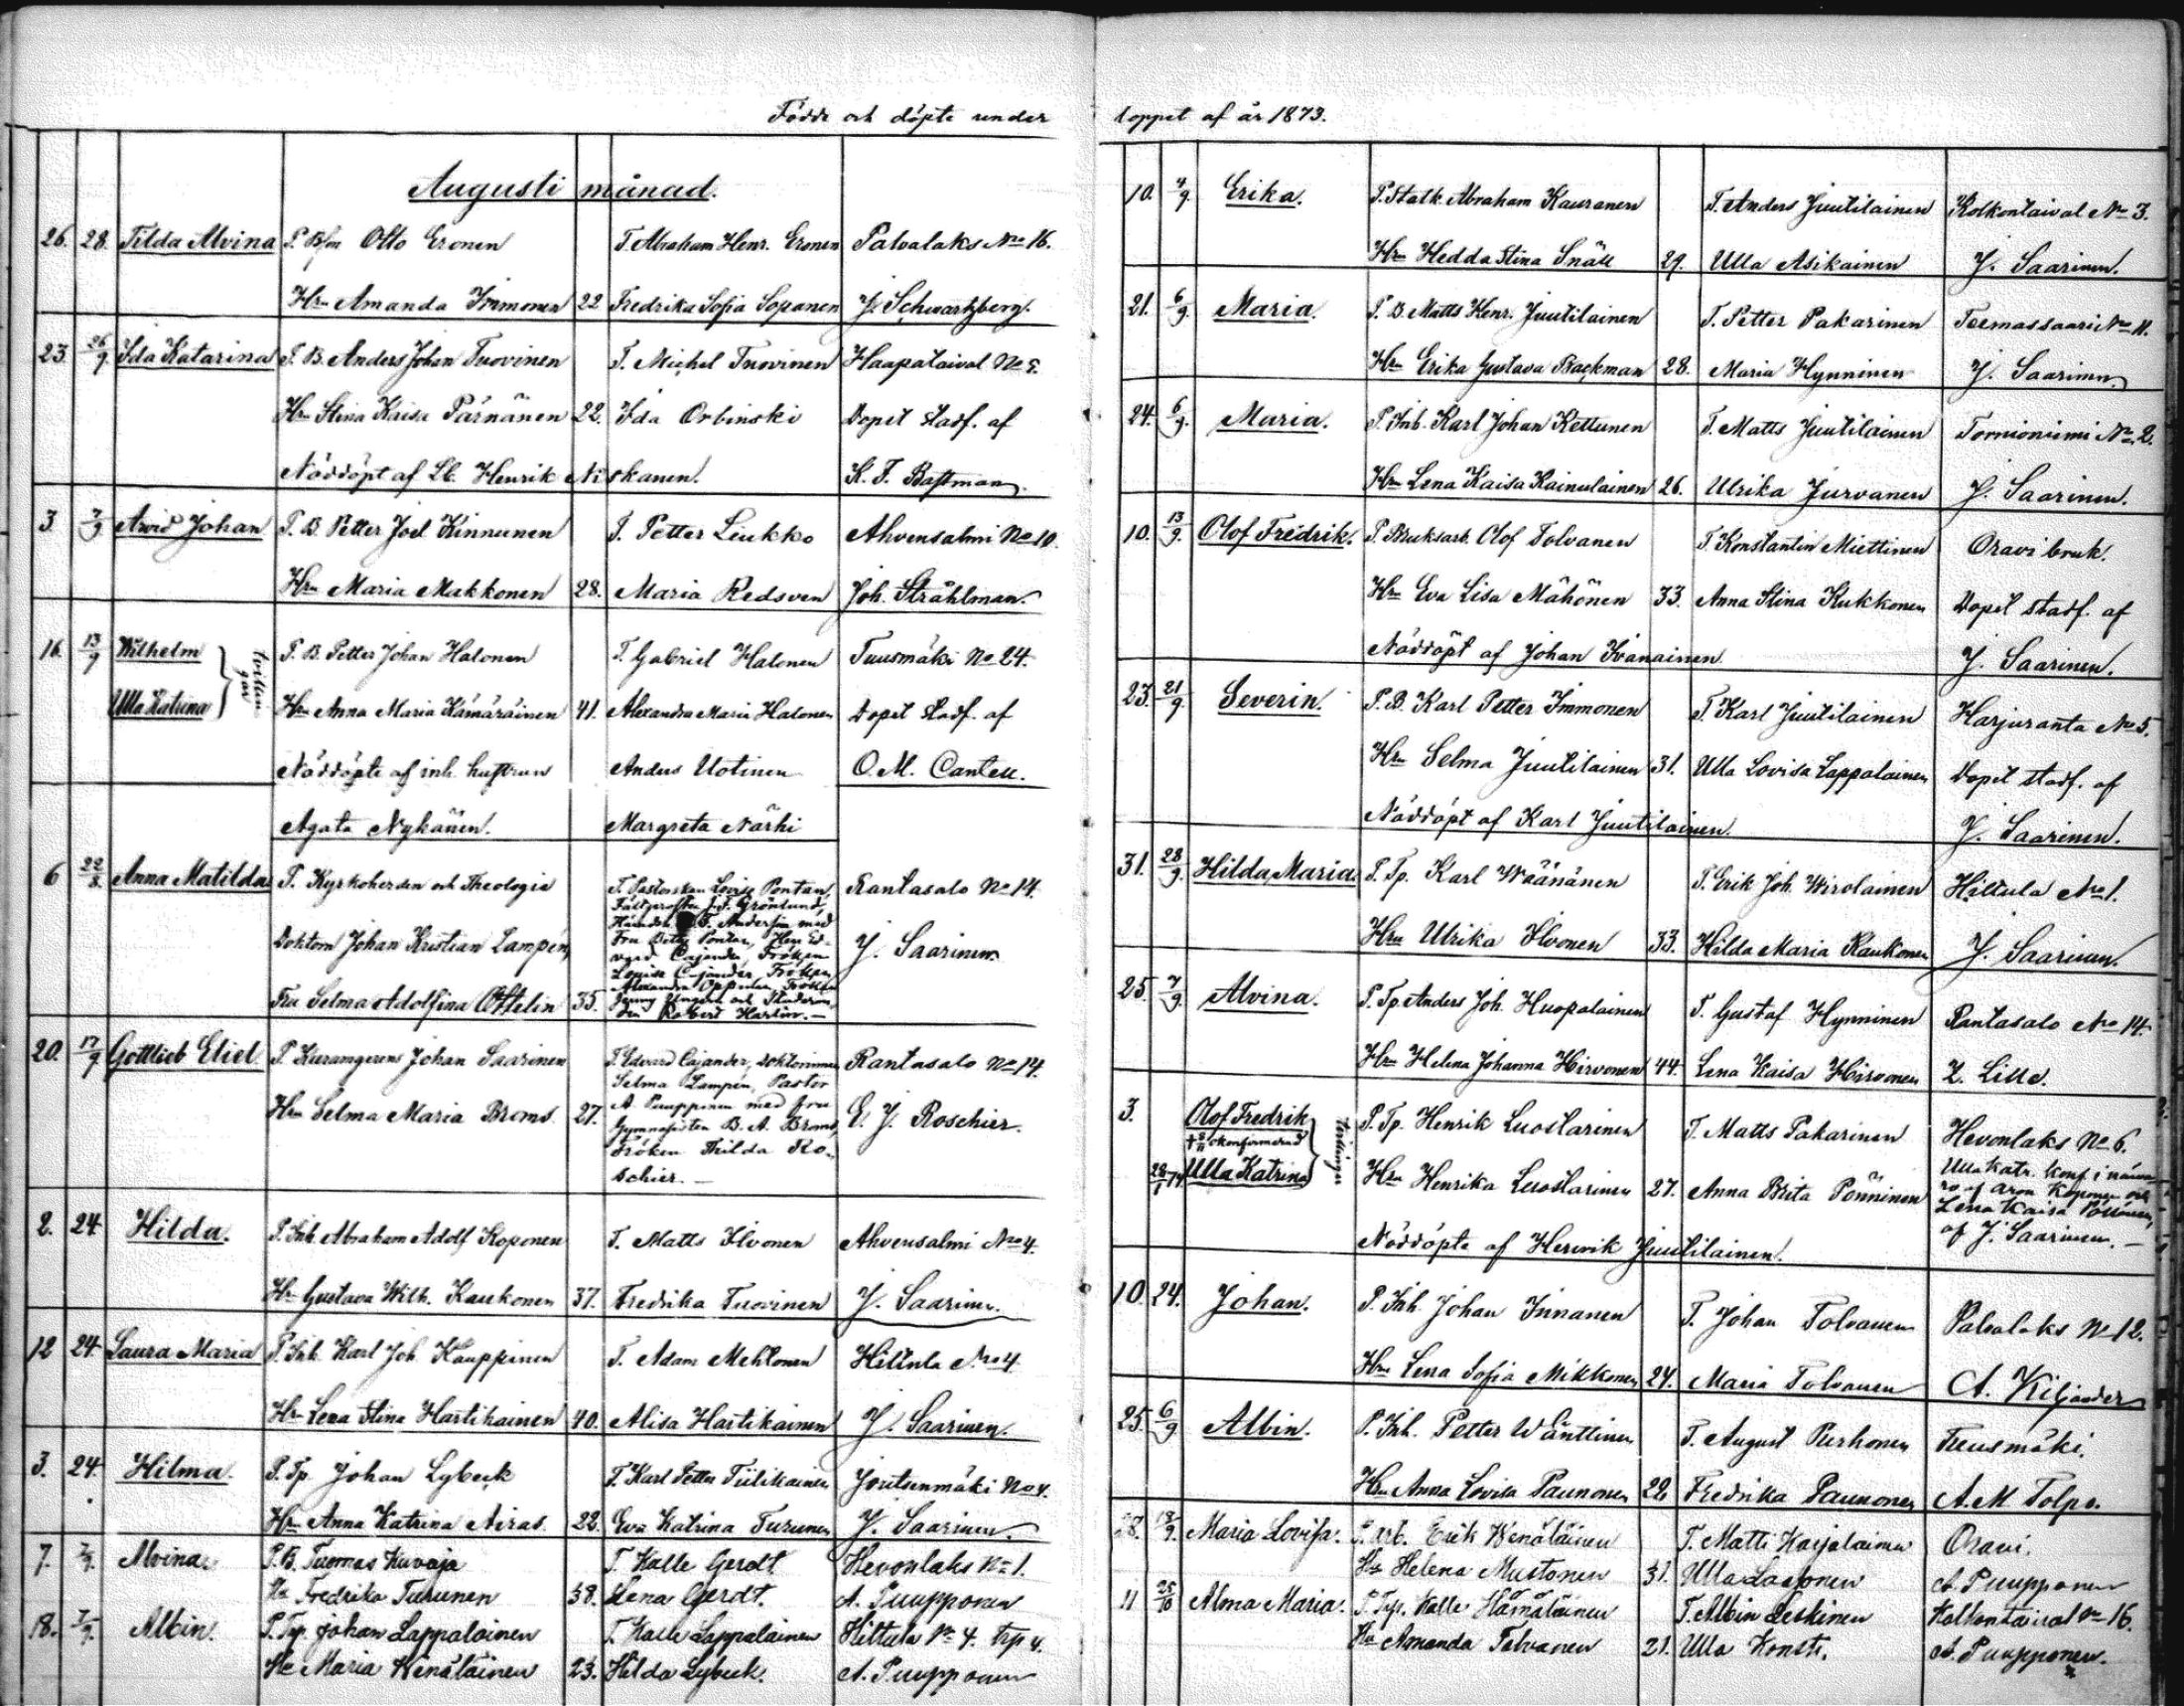 Födde och döpte under
Augusti månad.
26. 28. Tilda Alvina P. Bson Otto Eronen T. Abraham Henr. Eronen Palvalaks No 16.
Hru Amanda Immonen 22 Fredrika Sofia Soponen J. Schwartzberg.
23. 26/9. Ida Katarina P. B. Anders Johan Tuovinen T. Michel Tuovinen Haapataival No 5.
Hru Stina Kaisa Pärnänen 22. Ida Orbinski Dopet stadf. af
Nöddöpt af Lb. Henrik Niskanen. K. F. Bastman.
3. 7/9 Arvid Johan P. B. Petter Joel Kinnunen T. Petter Liukko Ahvensalmi No 10.
Hru Maria Makkonen 28. Maria Redsven Joh. Stråhlman.
16. 13/9 Wilhelm P. B. Petter Johan Halonen T. Gabriel Halonen Tuusmäki No 24.
tvillingar
Ulla Katrina Hru Anna Maria Hämäräinen 41. Alexandra Maria Halonen Dopet stadf. af
Nöddöpte af inh. hustrun Anders Uotinen O. M. Cantell.
Agata Nykänen. Margreta Närhi
6 22/8. Anna Matilda P. Kyrkoherden och Theologie T. Pastorskan Lovise Pontan, Rantasalo No 14.
Fältprosten J. F. Grönlund,
T. Andersin med
Doktorn Johan Kristian Lampén, Fru Betty Pontan, Herr Ed- J. Saarinen.
vard Cajander, Fröken
Louise Cajander, Fröken
Alexandra Fröken
Fru Selma Adolfina Ottelin 35. Jenny och Studeran-
den Robert
20. 17/9 Gottlieb Eliel P. Johan Saarinen T. Edvard Cajander, Doktorinnan Rantasalo No 14.
Selma Lampén, Pastor
Hru Selma Maria Broms. 27. A. Puupponen med fru E. J. Roschier.
Gymnasisten B. A. Broms,
Fröken Thilda Ro-
schier. —
2. 24 Hilda. P. Inh. Abraham Adolf Koponen T. Matts Ilvonen Ahvensalmi No 4.
Hru Gustava Wilh. Kaukonen 37. Fredrika Tuovinen J. Saarinen.
12 24 Laura Maria P. Inh. Karl Joh. Kauppinen T. Adam Mehtonen Hiltula No 4.
Hru Lena Stina Hartikainen 40. Alisa Hartikainen J. Saarinen.
3. 24. Hilma. P. Tp. Johan Lybeck T. Karl Petter Tiilikainen Joutsenmäki No 4.
Hru Anna Katrina Airas. 22. Eva Katrina Turunen J. Saarinen.
7. 7/9. Alvina. P. B. Tuomas Kuvaja T. Kalle Gerdt Hevonlaks No 1.
Hu Fredrika Turunen 38. Lena Gerdt. A. Puupponen
18. 7/9. Albin. P. Typ. Johan Lappalainen T. Kalle Lappalainen Hiltula No 4. Trp 4.
Hu Maria Wenäläinen 23. Hilda Lybeck. A. Puupponen
loppet af år 1873.
10. 4/9. Erika. P. Statk. Abraham Kauranen T. Anders Juutilainen Kolkontaival No 3.
Hru Hedda Stina Snäll 29. Ulla Asikainen J. Saarinen.
21. 6/9. Maria. P. B. Matts Henr. Juutilainen T. Petter Pakarinen Teemassaari No 11.
Hru Erika Gustava Backman 28. Maria Hynninen J. Saarinen.
24. 6/9. Maria. P. Inh. Karl Johan Kettunen T. Matts Juutilainen Tornioniemi No 2.
Hru Lena Kaisa Kainulainen 26. Ulrika Jurvanen J. Saarinen.
10. 13/9. Olof Fredrik. P. Bruksarb. Olof Tolvanen T. Konstantin Miettinen Oravi bruk.
Hru Eva Lisa Mähönen 33. Anna Stina Kukkonen Dopet stadf. af
Nöddöpt af Johan Ivanainen J. Saarinen.
23. 21/9 Severin. P. B. Karl Petter Immonen T. Karl Juutilainen Harjuranta No 5.
Hru Selma Juutilainen 31. Ulla Lovisa Lappalainen Dopet stadf. af
Nöddöpt af Karl Juutilainen. J. Saarinen.
31. 28/9. Hilda Maria P. Tp. Karl Wäänänen T. Erik Joh. Wirolainen Hiltula No 1.
Hru Ulrika Ilvonen 33. Hilda Maria Kaukonen J. Saarinen.
25. 7/9. Alvina. P. Tp. Anders Joh. Huopalainen T. Gustaf Hynninen Rantasalo No 14.
Hru Helena Johanna Hirvonen 44. Lena Kaisa Hirvonen Z. Lille.
3. Olof Fredrik P. Tp. Henrik Luostarinen T. Matts Pakarinen Hevonlaks No 6.
okonfirmerad
tvillingar
28/1 74 Ulla Katrina Hru Henrika Luostarinen 27. Anna Brita Pönninen Ulla Katr. konf. i närva-
ro af Aron Koponen och
Lena Kaisa Pöllänen,
Nöddöpte af Henrik Juutilainen. af J. Saarinen. —
10. 24. Johan. P. Inh. Johan Innanen T. Johan Tolvanen Palvalaks No 12.
Hru Lena Sofia Mikkonen 24. Maria Tolvanen A. Kiljander
25. 6/9 Albin. P. Inh. Petter Wänttinen T. August Purhonen Tuusmäki.
Hru Anna Lovisa Paunonen 22. Fredrika Paunonen A. M. Tolpo.
28. 18/9. Maria Lovisa. P. Arb. Erik Wenäläinen T. Matti Karjalainen Oravi.
Hu Helena Mustonen 31. Ulla Laasonen A. Puupponen
11 25/10 Alma Maria. P. Typ. Kalle Hämäläinen T. Albin Leskinen Kolkontaival No 16.
Hu Amanda Tolvanen 21. Ulla Konsti. A. Puupponen.